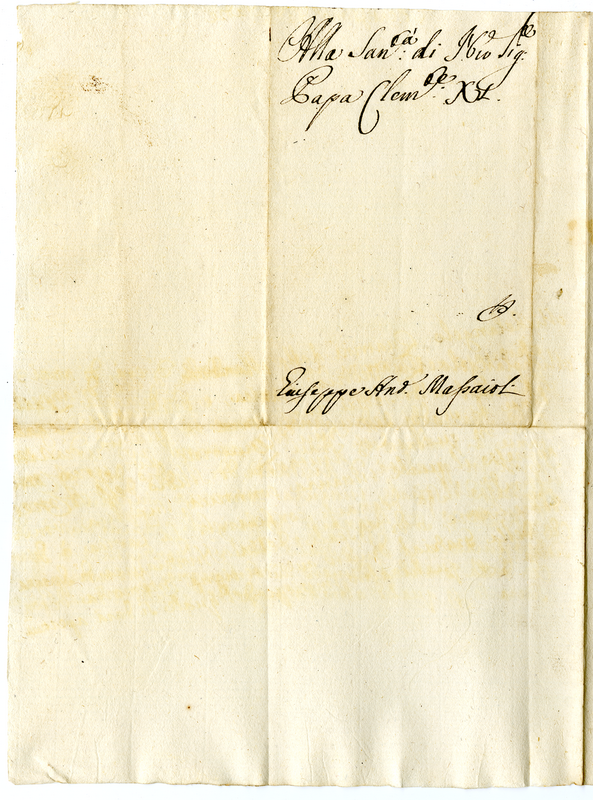 Alla San.tà di N.ro Sig.re
Papa Clem.te XI.
Giuseppe And. Massaiol